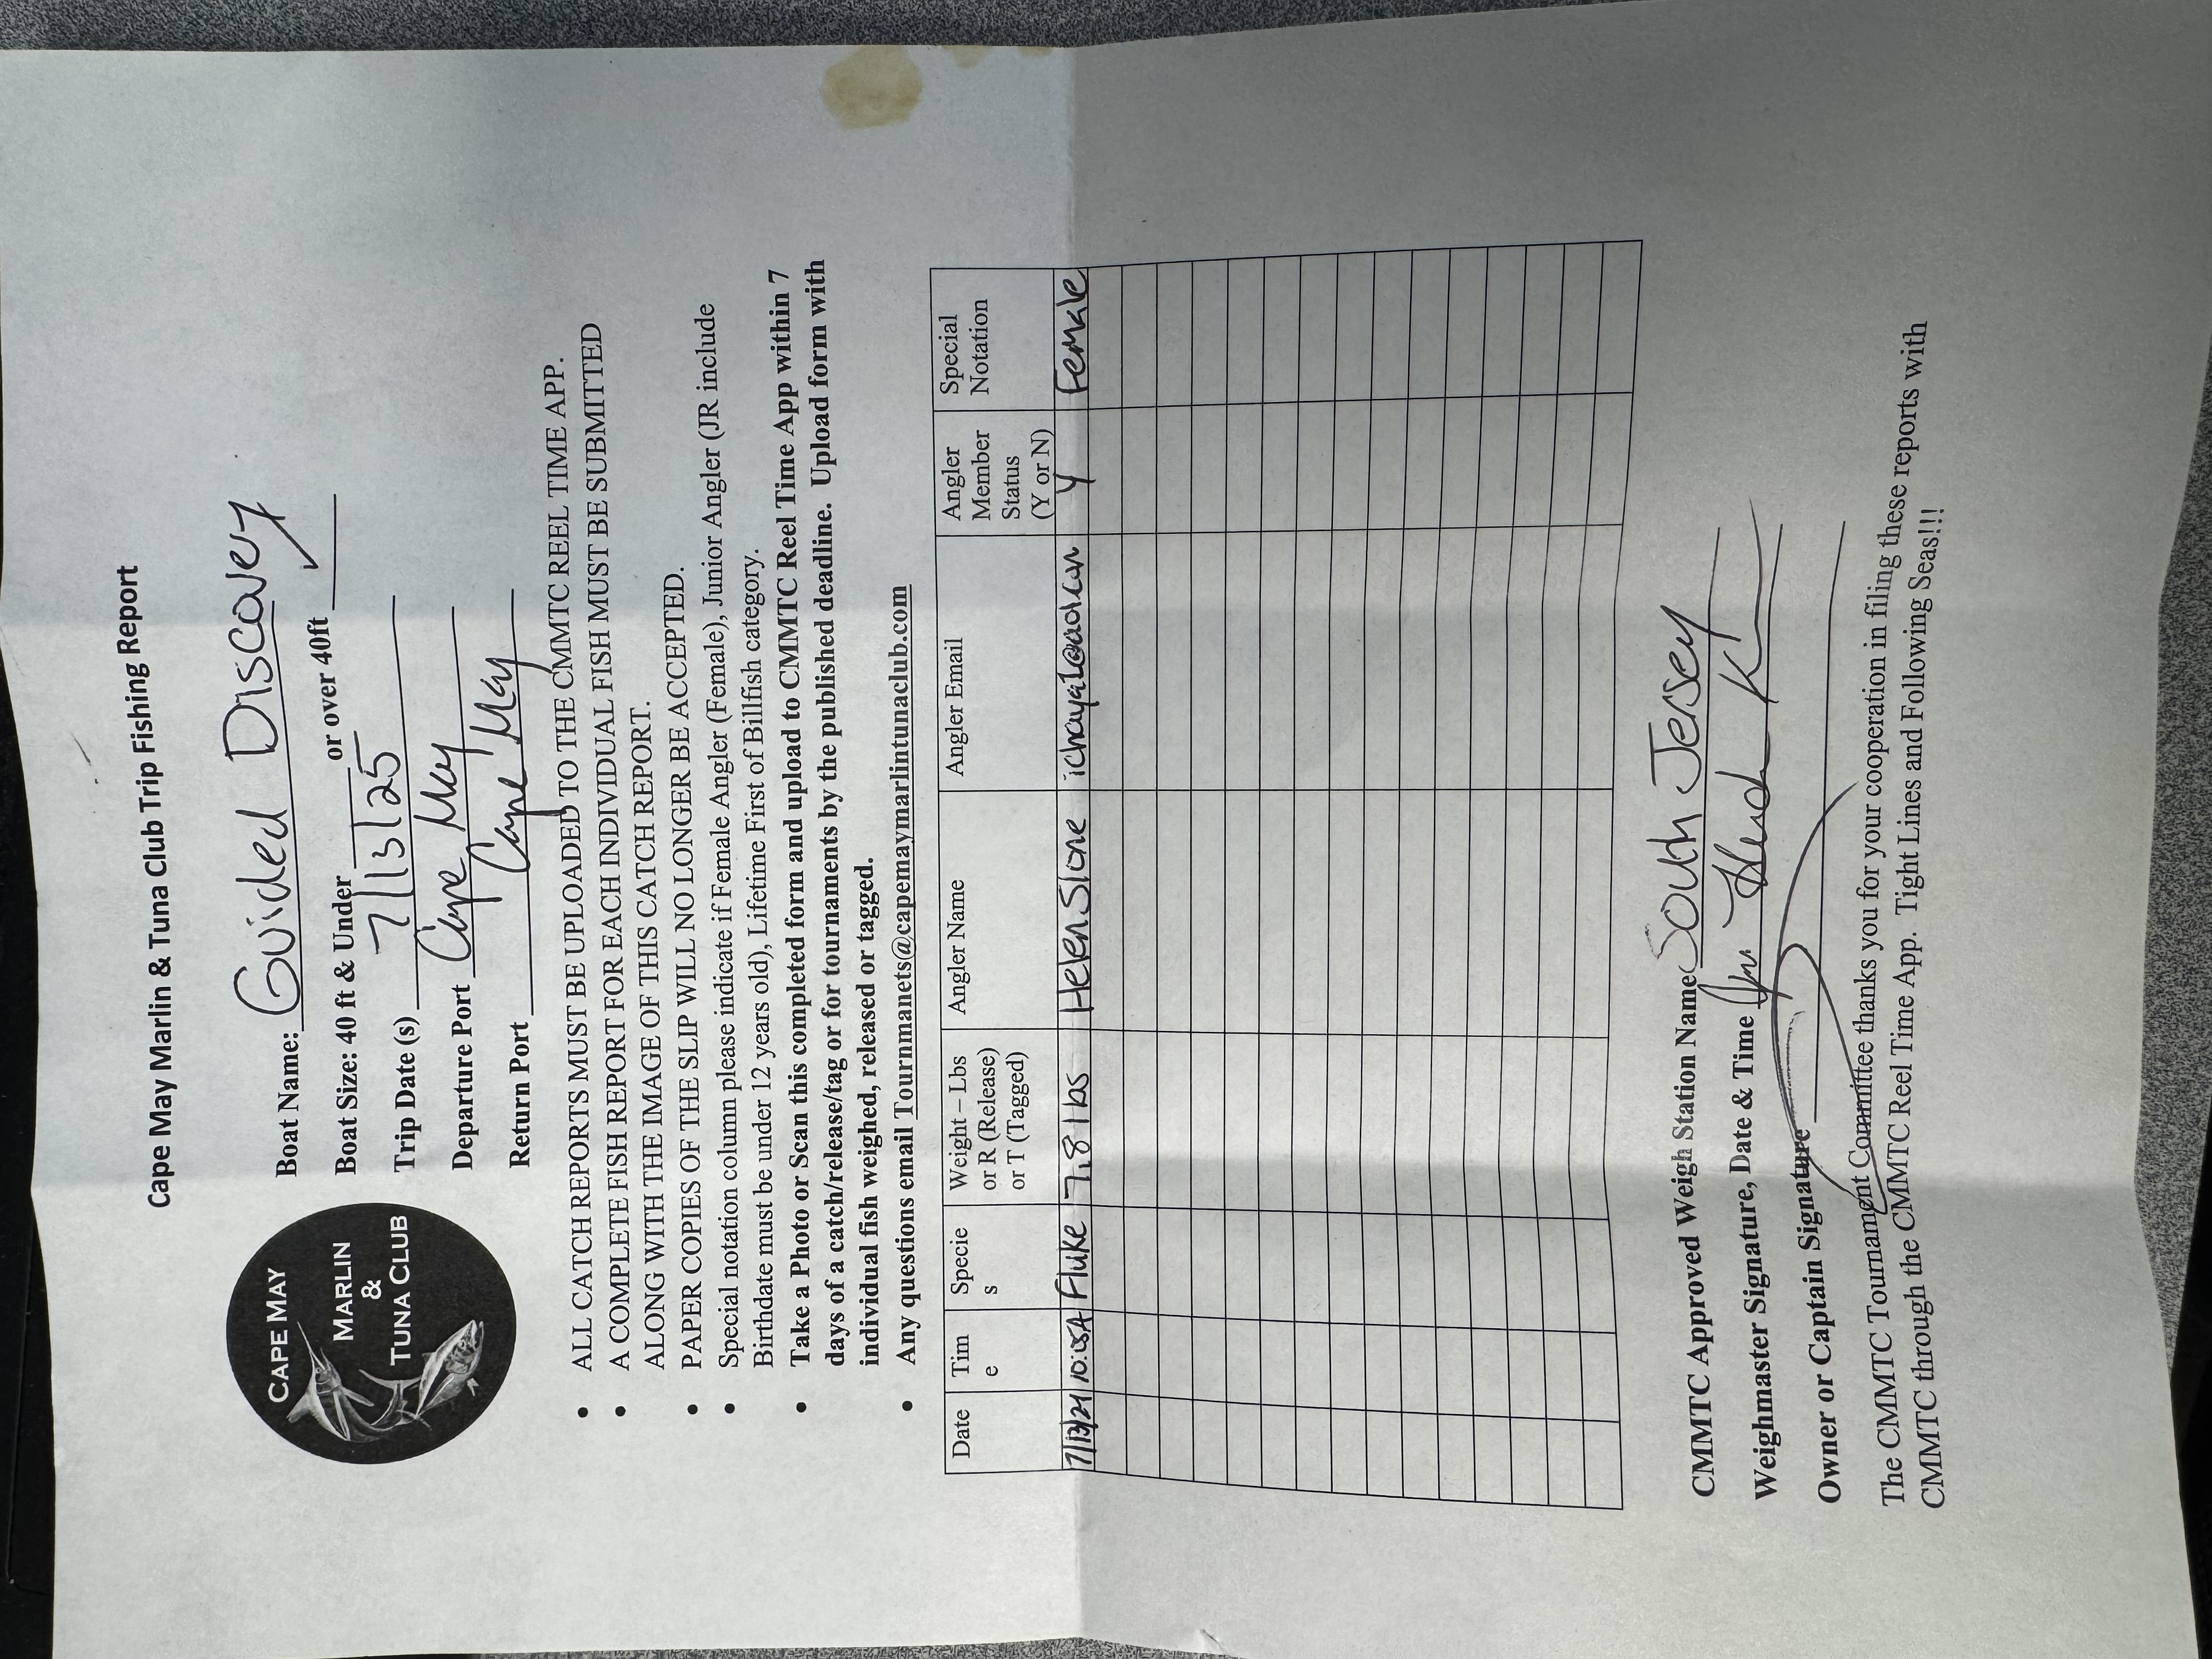 Cape May Marlin & Tuna Club Trip Fishing Report
CAPE MAY
MARLIN
&
TUNA CLUB
Boat Name: Guided Discovery
Boat Size: 40 ft & Under ______ or over 40ft ✓
Trip Date (s) 7/13/25
Departure Port Cape May
Return Port Cape May
• ALL CATCH REPORTS MUST BE UPLOADED TO THE CMMTC REEL TIME APP.
• A COMPLETE FISH REPORT FOR EACH INDIVIDUAL FISH MUST BE SUBMITTED
ALONG WITH THE IMAGE OF THIS CATCH REPORT.
• PAPER COPIES OF THE SLIP WILL NO LONGER BE ACCEPTED.
• Special notation column please indicate if Female Angler (Female), Junior Angler (JR include
Birthdate must be under 12 years old), Lifetime First of Billfish category.
• Take a Photo or Scan this completed form and upload to CMMTC Reel Time App within 7
days of a catch/release/tag or for tournaments by the published deadline. Upload form with
individual fish weighed, released or tagged.
• Any questions email Tournmanets@capemaymarlintunaclub.com
Date
Tim
e
Specie
s
Weight – Lbs
or R (Release)
or T (Tagged)
Angler Name
Angler Email
Angler
Member
Status
(Y or N)
Special
Notation
10:05A Fluke 7.8 lbs Helen Y Female
CMMTC Approved Weigh Station Name South Jersey
Weighmaster Signature, Date & Time
Owner or Captain Signature
The CMMTC Tournament Committee thanks you for your cooperation in filing these reports with
CMMTC through the CMMTC Reel Time App. Tight Lines and Following Seas!!!